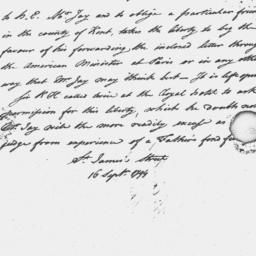 to H.E. Mr Jay and to oblige a particular frien
in the county of Kent, takes the liberty to beg the
favour of his forwarding the inclosed letter throug
the American Minister at Paris or in any other
way that Mr Jay may think best — It is left open
Sir R H called twice at the Royal Hotel to ask
permission for this liberty, which he doubts not
Mr Jay will the more readily excuse as
judge from experience of a Father's fond
St James's Street
16 Sept 1794